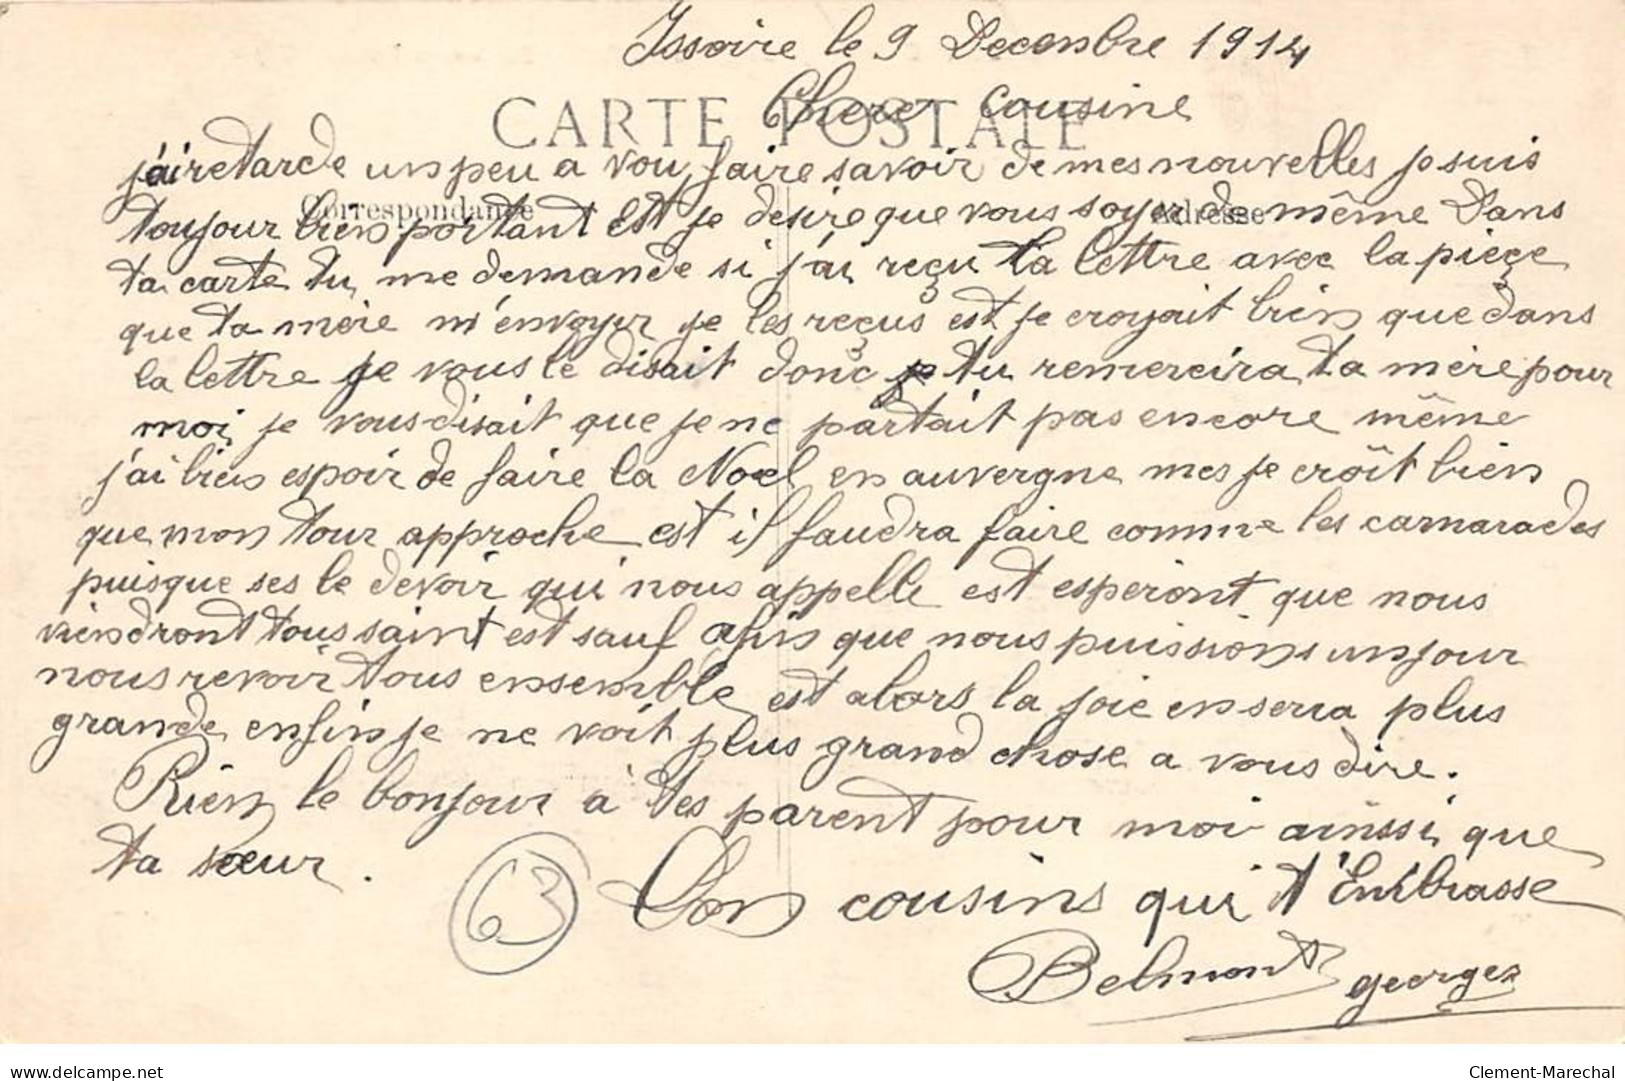 Issoire le 9 Decembre 1914
Chere cousine
CARTE POSTALE
j'ai retarde un peu a vou faire savoir de mes nouvelles je suis
Correspondance
Adresse
toujour bien portant est je desire que vous soyer de même Dans
ta carte tu me demande si j'ai reçu ta lettre avec la pieçe
que ta mère m'envoyer je les reçus est je croyait bien que dans
la lettre je vous le disait donc tu remercira ta mère pour
moi je vous disait que je ne partait pas encore même
j'ai bien espoir de faire la Noel en auvergne mes je croît bien
que mon tour approche est il faudra faire comme les camarades
puisque ses le devoir qui nous appelle est esperont que nous
viendront tous saint est sauf afin que nous puissions un jour
nous revoir tous ensemble est alors la joie en serra plus
grande enfin je ne voit plus grand chose a vous dire.
Rien le bonjour à tes parent pour moi ainssi que
ta sœur.
63
Ton cousins qui t'Embrasse
Belmont georges
delcampe.net
Clement-Marechal